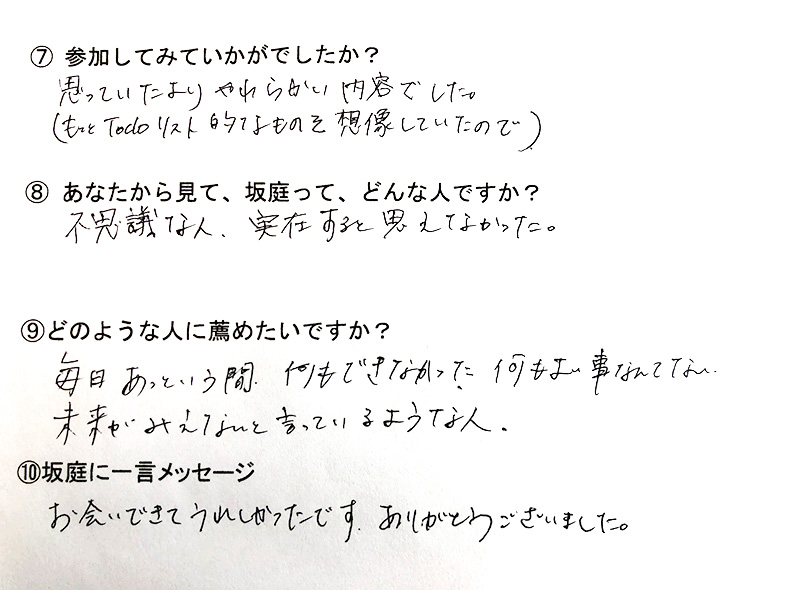 ⑦ 参加してみていかがでしたか？
思っていたよりやわらかい内容でした。
(もっとTodoリスト的なものを想像していたので)
⑧ あなたから見て、坂庭って、どんな人ですか？
不思議な人、実在すると思えてなかった。
⑨どのような人に薦めたいですか？
毎日あっという間、何もできなかった、何もよい事なんてない
未来がみえないと言っているような人。
⑩坂庭に一言メッセージ
お会いできてうれしかったです。ありがとうございました。